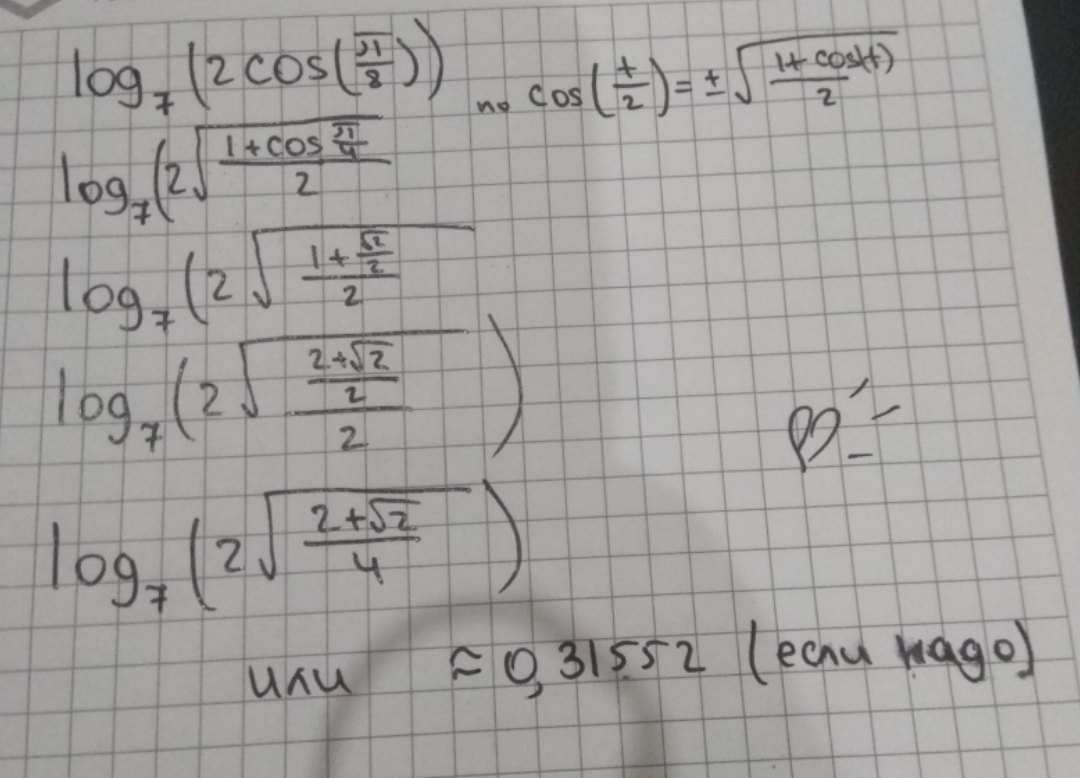 log₇(2cos(π/8)) по cos(t/2)=±√((1+cos(t))/2)
log₇(2√((1+cos π/4)/2)
log₇(2√((1+√2/2)/2)
log₇(2√(((2+√2)/2)/2))
log₇(2√((2+√2)/4))
или ≈0,31552 (если надо)